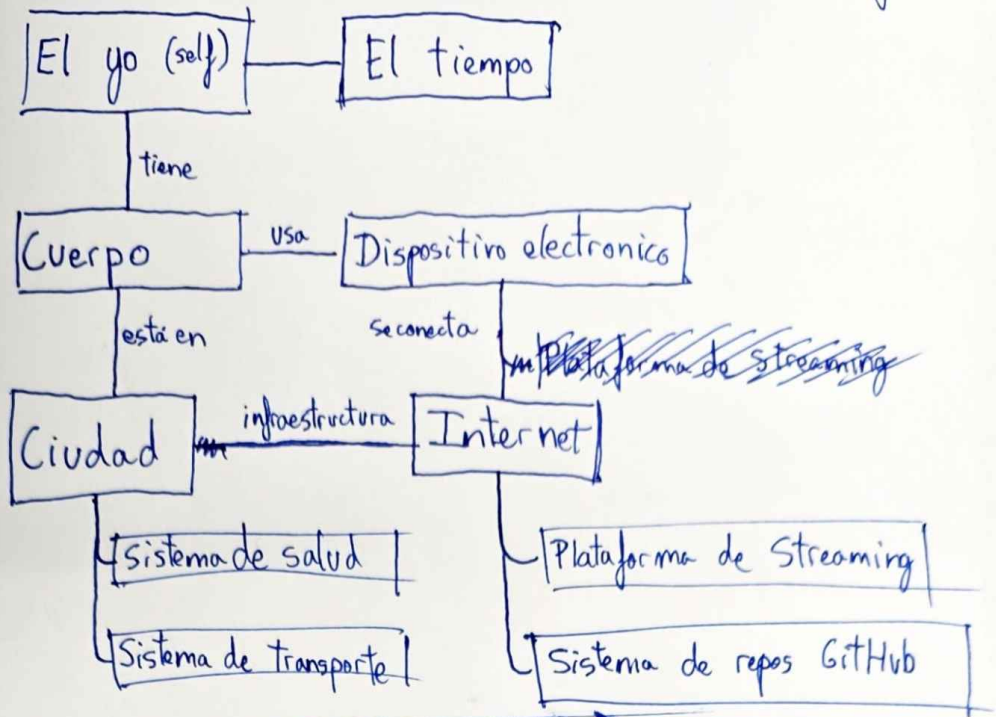 El yo (self)
El tiempo
tiene
Cuerpo
usa
Dispositivo electronico
está en
se conecta
Plataforma de Streaming
Ciudad
infraestructura
Internet
Sistema de salud
Plataforma de Streaming
Sistema de transporte
Sistema de repos GitHub